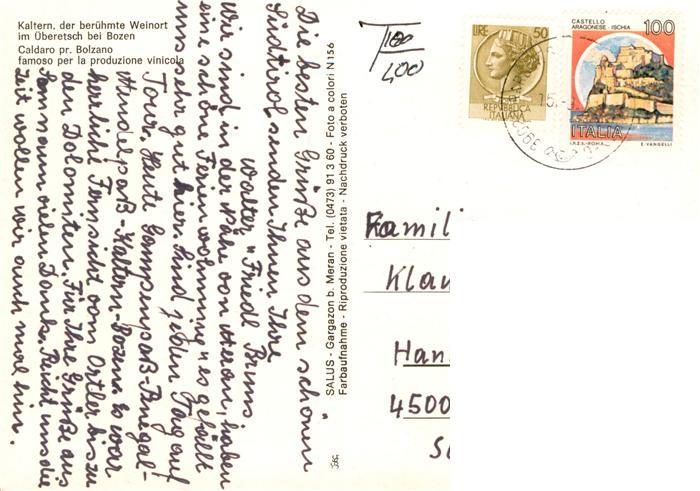 Kaltern, der berühmte Weinort
im Überetsch bei Bozen
Caldaro pr. Bolzano
famoso per la produzione vinicola
Die besten Grüße aus dem schönen
Südtirol senden Ihnen Ihre
Walter u Friedl Bruns
Wir sind in der Nähe von Meran, haben
eine schöne Ferienwohnung u es gefällt
uns sehr gut hier. Sind jeden Tag auf
Tour. Heute Gampenpaß-
Mendelpaß-Kaltern-Bozen. Es war
herrliche Fernsicht vom Ortler bis zu
den Dolomiten. Für Ihre Grüße aus
vielen Dank. Reicht uns die
Zeit wollen wir auch mal hin.
SALUS - Gargazon b. Meran - Tel. (0473) 91 3 60 - Foto a colori N 156
Farbaufnahme - Riproduzione vietata - Nachdruck verboten
T 100
400
LIRE 50
REPUBBLICA
ITALIANA
CASTELLO
ARAGONESE - ISCHIA 100
ITALIA
I.P.Z.S. - ROMA E. VANGELLI
Famil
Klau
Han
4500